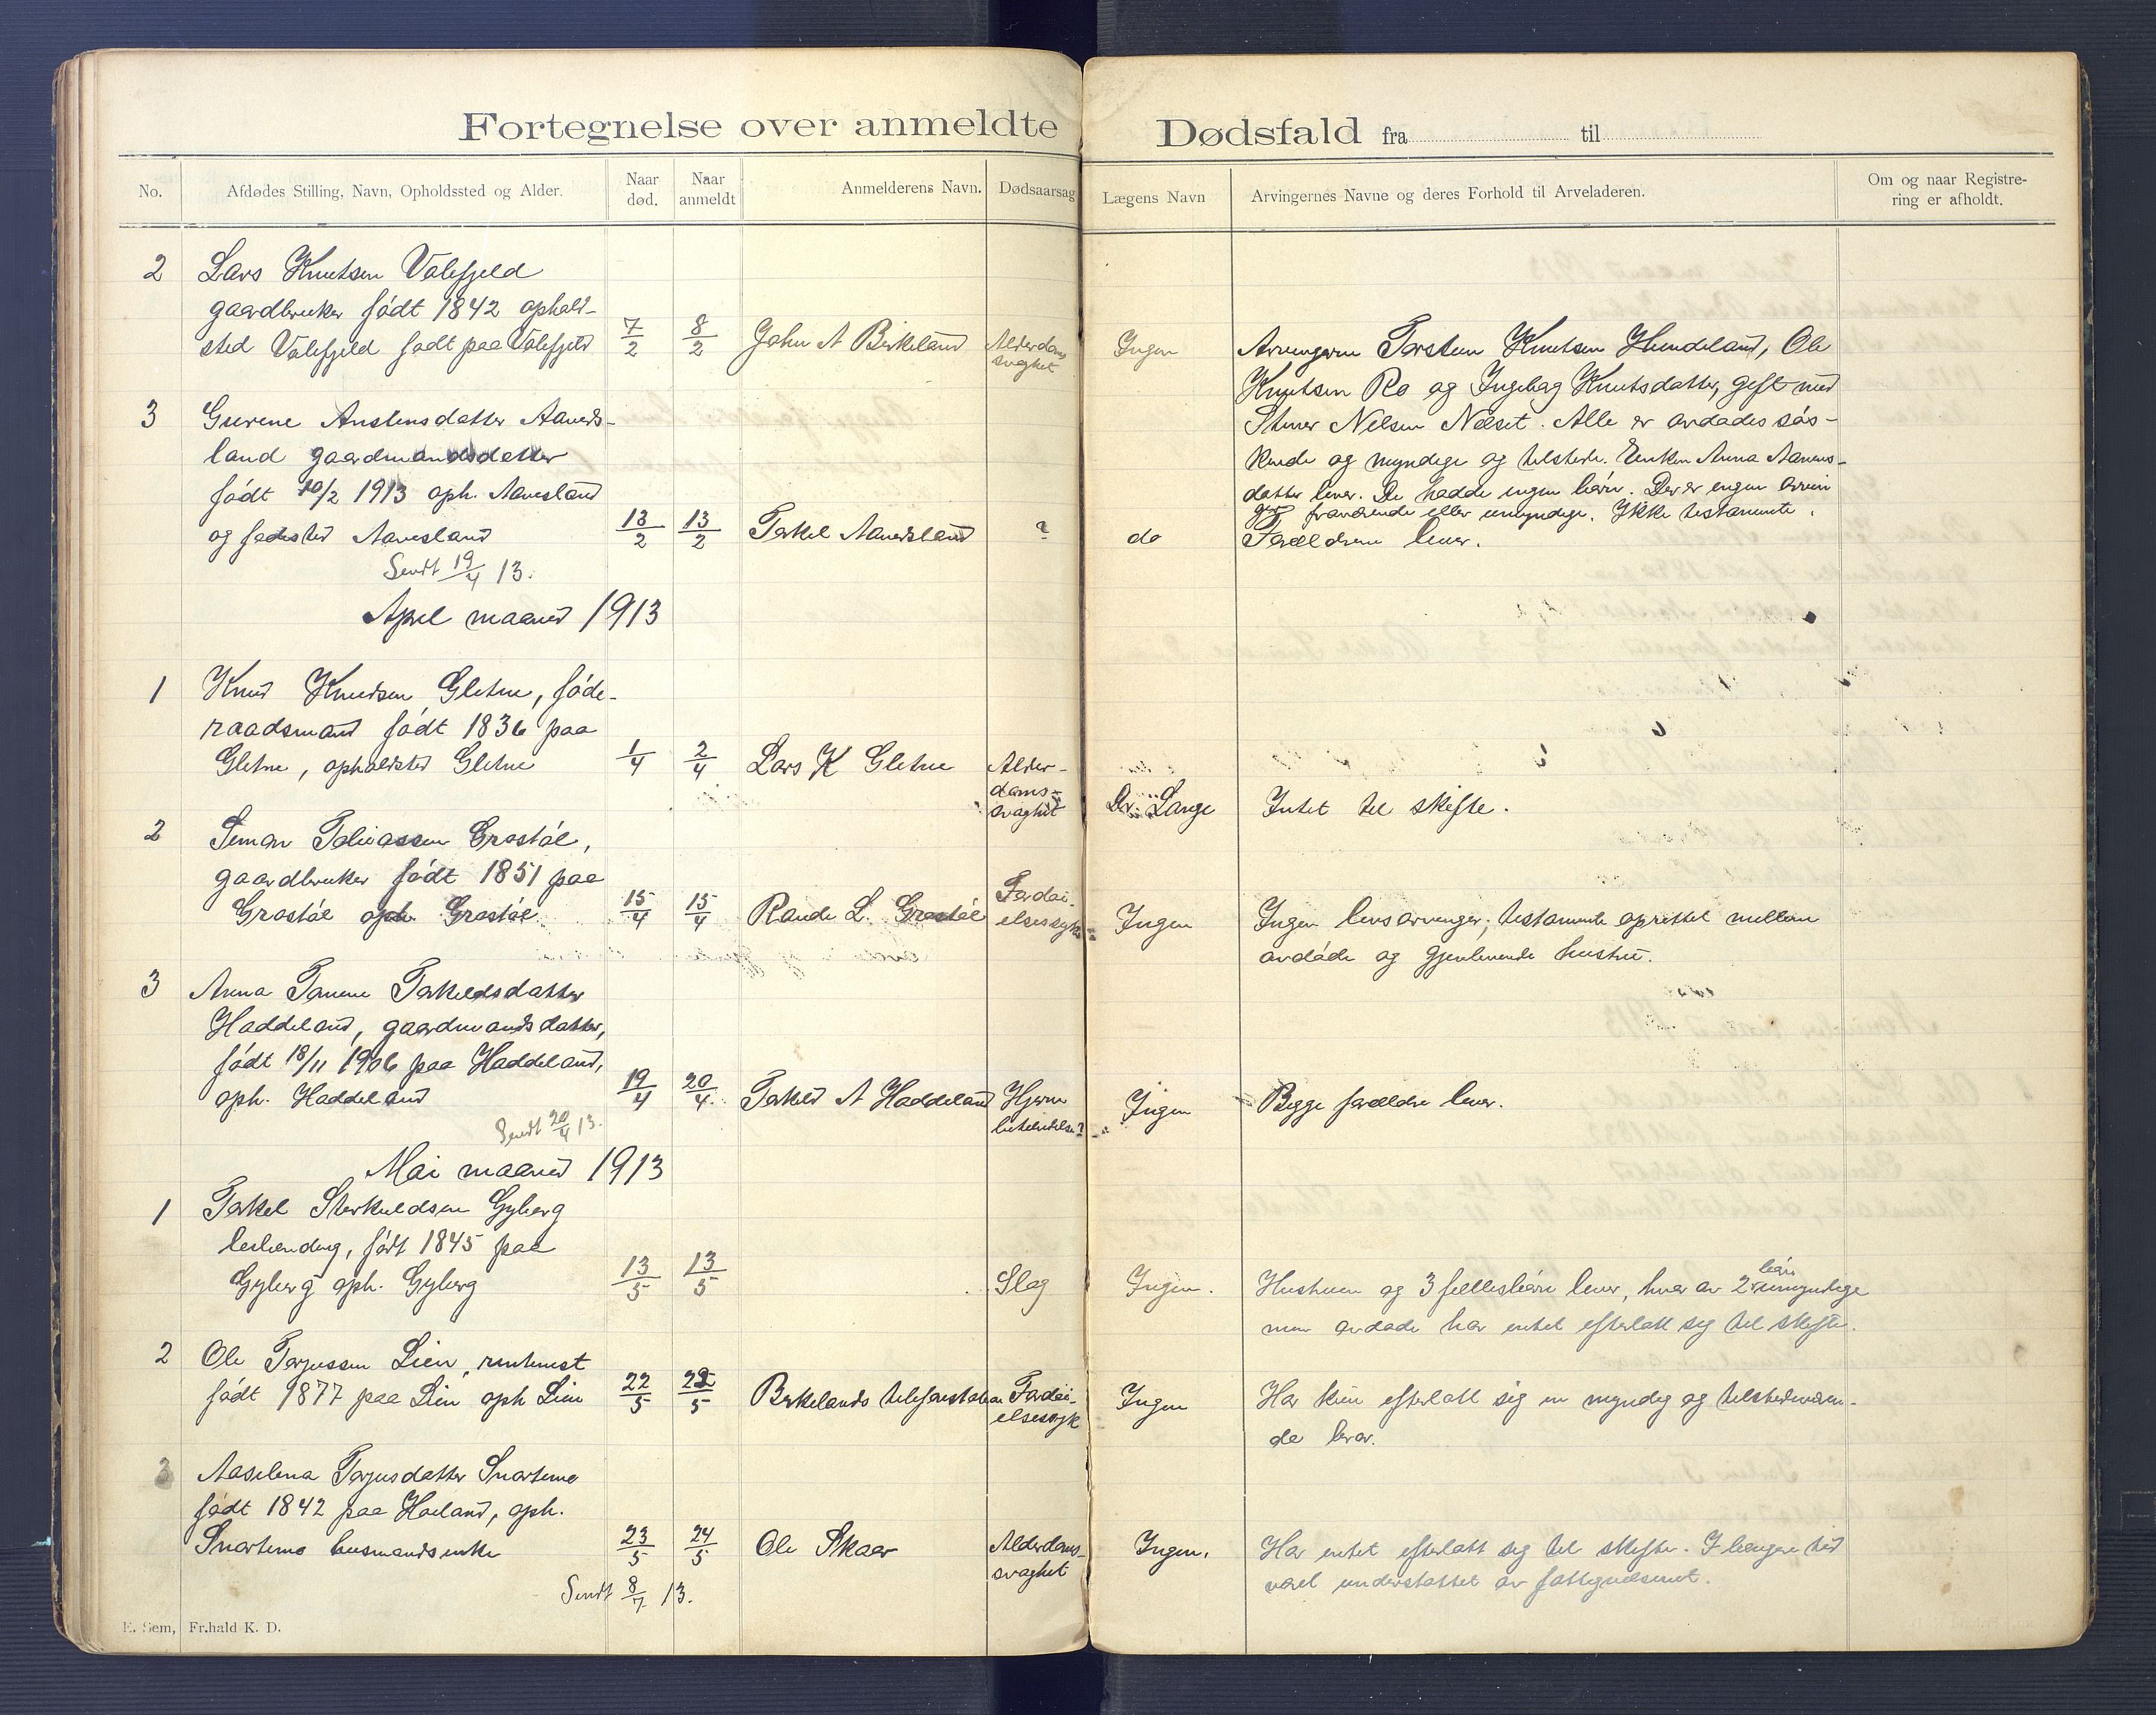 Fortegnelse over anmeldte Dødsfald fra til
No. Afdødes Stilling, Navn, Opholdssted og Alder. Naar død. Naar anmeldt Anmelderens Navn. Dødsaarsag Lægens Navn Arvingernes Navne og deres Forhold til Arveladeren. Om og naar Registrering er afholdt.
2 Lars Knutsen Valefjeld
gaardbruker født 1842 ophold-
sted Valefjeld født paa Valefjeld 7/2 8/2 John A Birkeland Alderdoms
svaghet Ingen Arvingerne Torsten Knutsen Hundeland, Ole
Knutsen Ro og Ingeborg Knutsdatter, gift med
Stener Nelsen Netset. Alle er avdødes søs-
kende og myndige og tilstede. Enken Anna Aanens-
datter lever. De hadde ingen børn. Der er ingen arvin
ger fraværende eller umyndige. Ikke testamente.
3 Gurine Austensdatter Aaneds-
land gaardmandsdatter
født 10/2 1913 oph. Aanesland
og fødested Aanesland 13/2 13/2 Torkel Aanedsland ? do Forældrene lever.
Sendt 19/4 13.
April maaned 1913
1 Knud Knudsen Gletne, føde-
raadsmand født 1836 paa
Gletne, opholdsted Gletne 1/4 2/4 Lars K Gletne Alder-
doms-
svaghet Dr. Lange Intet til skifte.
2 Simon Tobiassen Grostøl,
gaardbruker født 1851 paa
Grostøl oph. Grostøl 15/4 15/4 Rande L. Grostøl Fordøi-
elsessyk Ingen Ingen livsarvinger; testamente oprettet mellem
avdøde og gjenlevende hustru.
3 Anna Tomine Torkeldsdatter
Haddeland, gaardmandsdatter,
født 18/11 1906 paa Haddeland,
oph. Haddeland 19/4 20/4 Torkeld A Haddeland Hjerne
betændelse? Ingen Begge forældre lever.
Sendt 20/4 13.
Mai maaned 1913
1 Torkel Sterkuldsen Gyberg
født 1845 paa
Gyberg oph. Gyberg 13/5 13/5 Slag Ingen. Hustruen og 3 fællesbørn lever, hvor av 2 børn umyndige
men avdøde har intet efterlatt sig til skifte.
2 Ole Terjussen Lien
født 1877 paa Lien oph Lien 22/5 22/5 Birkelands telefonstation Fordøi-
elsessyk Ingen Har kun efterlatt sig en myndig og tilstedeværen-
de bror.
3 Aaselena Terjusdatter Snartemo
født 1842 paa Hoeland, oph.
Snartemo husmandsenke 23/5 24/5 Ole Skaar Alderdoms-
svaghet Ingen. Har intet efterlatt sig til skifte. I længere tid
været understøttet av fattigvæsenet.
Sendt 8/7 13.
E. Sem, Fr.hald K. D.